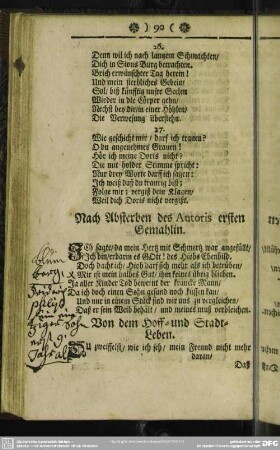 ) 90 (
26.
Denn wil ich nach langem Schmachten/
Dich in Sions Burg betrachten.
Brich erwünschter Tag herein!
Und mein sterbliches Gebein/
Sol/ biß künfftig unsre Seelen
Wieder in die Cörper gehn/
Nechst bey dir/ in einer Höhlen/
Die Verwesung überstehn.
27.
Wie geschicht mir/ darf ich trauen?
O du angenehmes Grauen!
Hör ich meine Doris nicht?
Die mit holder Stimme spricht:
Nur drey Worte darff ich sagen:
Ich weiß daß du traurig bist;
Folge mir; vergiß dein Klagen/
Weil dich Doris nicht vergist.
Nach Absterben des Autoris ersten
Gemahlin.
ICh sagte/ da mein Hertz mit Schmertz war angefüllt/
Ich bin/ erbarm es GOtt! des Hiobs Ebenbild.
Doch dacht ich/ Hiob darff sich mehr als ich betrüben/
Wir ist mein halbes Gut/ ihm keines übrig blieben.
Ja aller Kinder Tod beweint der krancke Mann/
Da ich doch einen Sohn gesund noch küssen kan/
Und nur in einem Stück sind wir uns zu vergleichen/
Daß er sein Weib behält/ und meines muß verbleichen.
Von dem Hoff- und Stadt-
Leben.
DU zweiffelst/ wie ich seh/ mein Freund nicht mehr
daran/
Daß